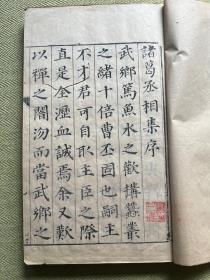 諸葛丞相集序
武鄉篤魚水之歡搆蠶叢
之緒十倍曹丕固也嗣主
不才君可自取主臣之際
直是全瀝血誠焉余又歎
以禪之闇汤而當武鄉之